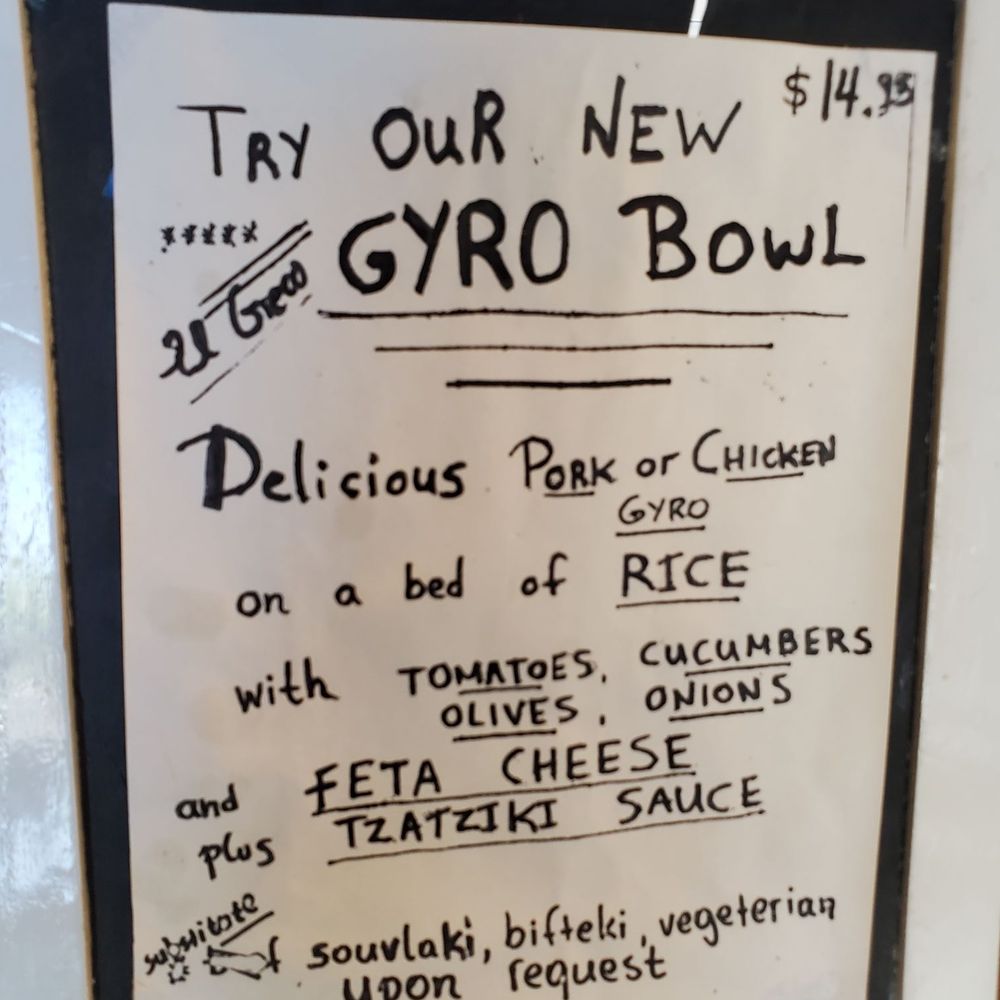 $14.95
TRY OUR NEW
*****
Il Greco
GYRO BOWL
Delicious PORK or CHICKEN
GYRO
on a bed of RICE
with TOMATOES, CUCUMBERS
OLIVES, ONIONS
and FETA CHEESE
plus TZATZIKI SAUCE
substitute
souvlaki, bifteki, vegeterian
upon request